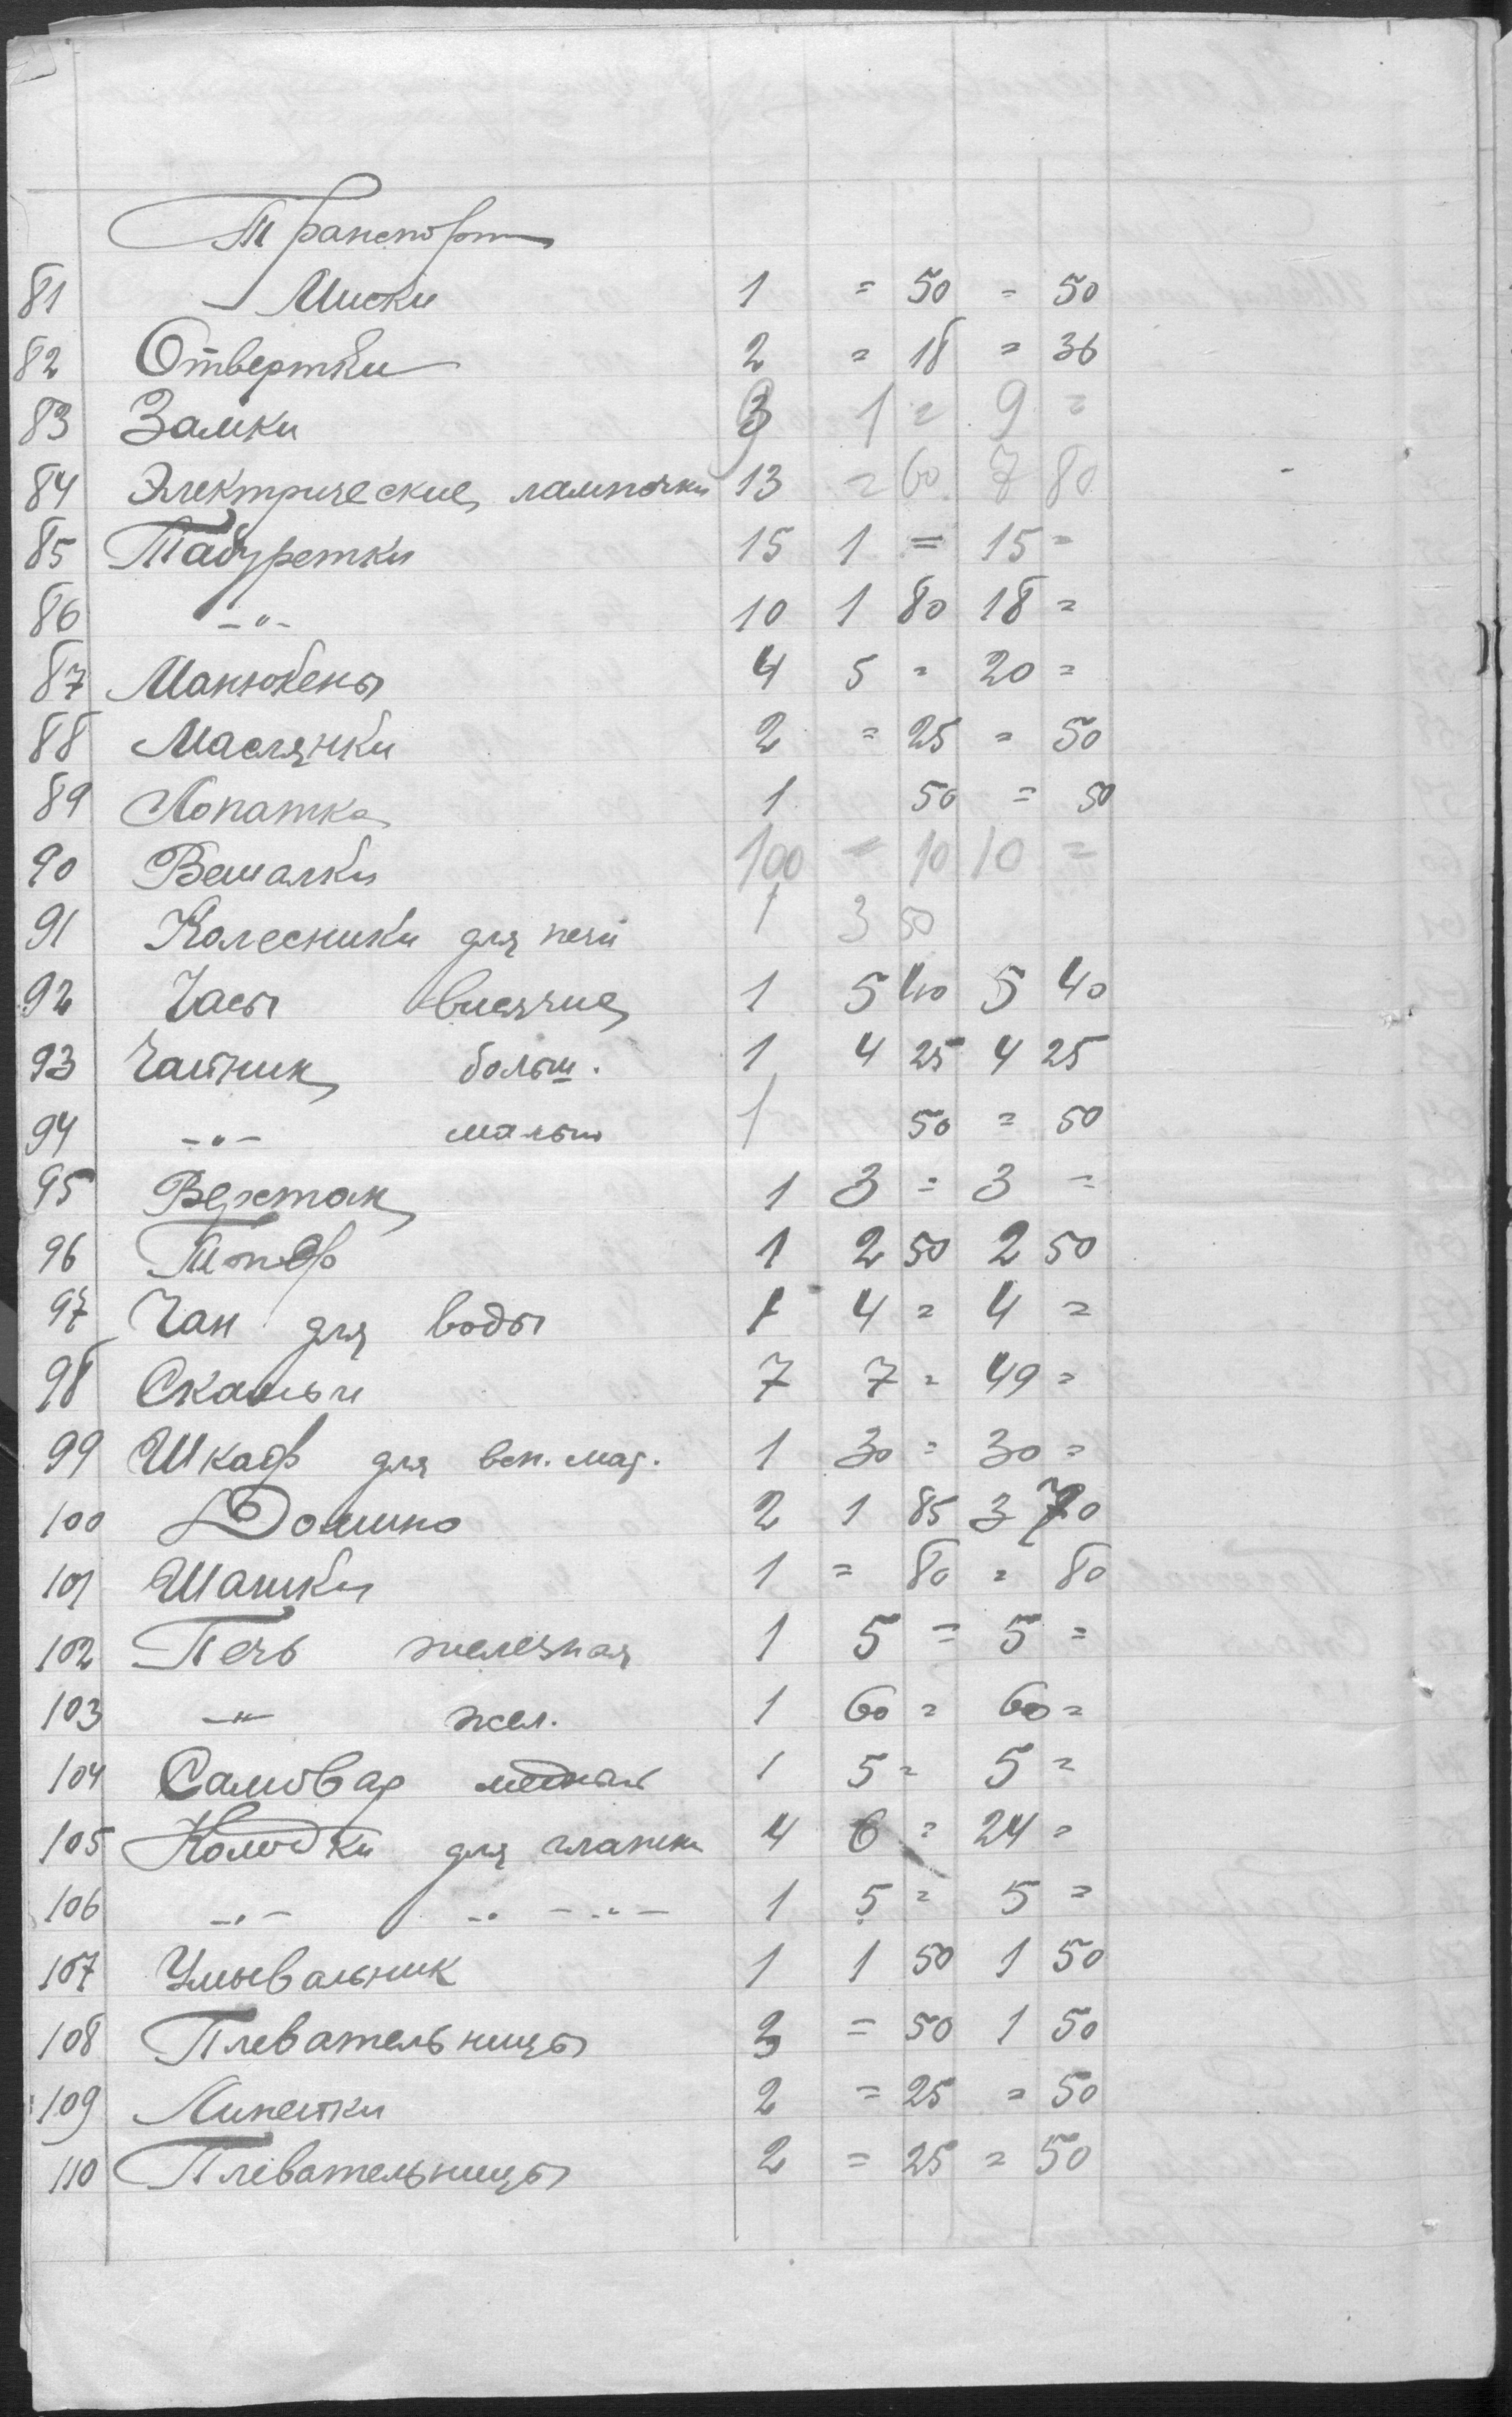 Транспорт
81 Миски 1 = 50 = 50
82 Отвертки 2 = 18 = 36
83 Замки 9 1 = 9 =
84 Электрические лампочки 13 = 60 7 80
85 Табуретки 15 1 = 15 =
86 -"- 10 1 80 18 =
87 Манюкены 4 5 = 20 =
88 Маслянки 2 = 25 = 50
89 Лопатка 1 50 = 50
90 Вешалки 100 = 10 10 =
91 Колесники для печи 1 3 50
92 Часы висячие 1 5 40 5 40
93 Чайник больш. 1 4 25 4 25
94 -"- малый 1 50 = 50
95 Верстак 1 3 = 3 =
96 Топор 1 2 50 2 50
97 Чан для воды 1 4 = 4 =
98 Скамьи 7 7 = 49 =
99 Шкаф для всп. мат. 1 30 = 30 =
100 Домино 2 1 85 3 70
101 Шашки 1 = 80 = 80
102 Печь железная 1 5 = 5 =
103 -"- жел. 1 60 = 60 =
104 Самовар медный 1 5 = 5 =
105 Колодки для глажки 4 6 = 24 =
106 -"- -"- -"- 1 5 = 5 =
107 Умывальник 1 1 50 1 50
108 Плевательницы 3 = 50 1 50
109 2 = 25 = 50
110 Плевательницы 2 = 25 = 50